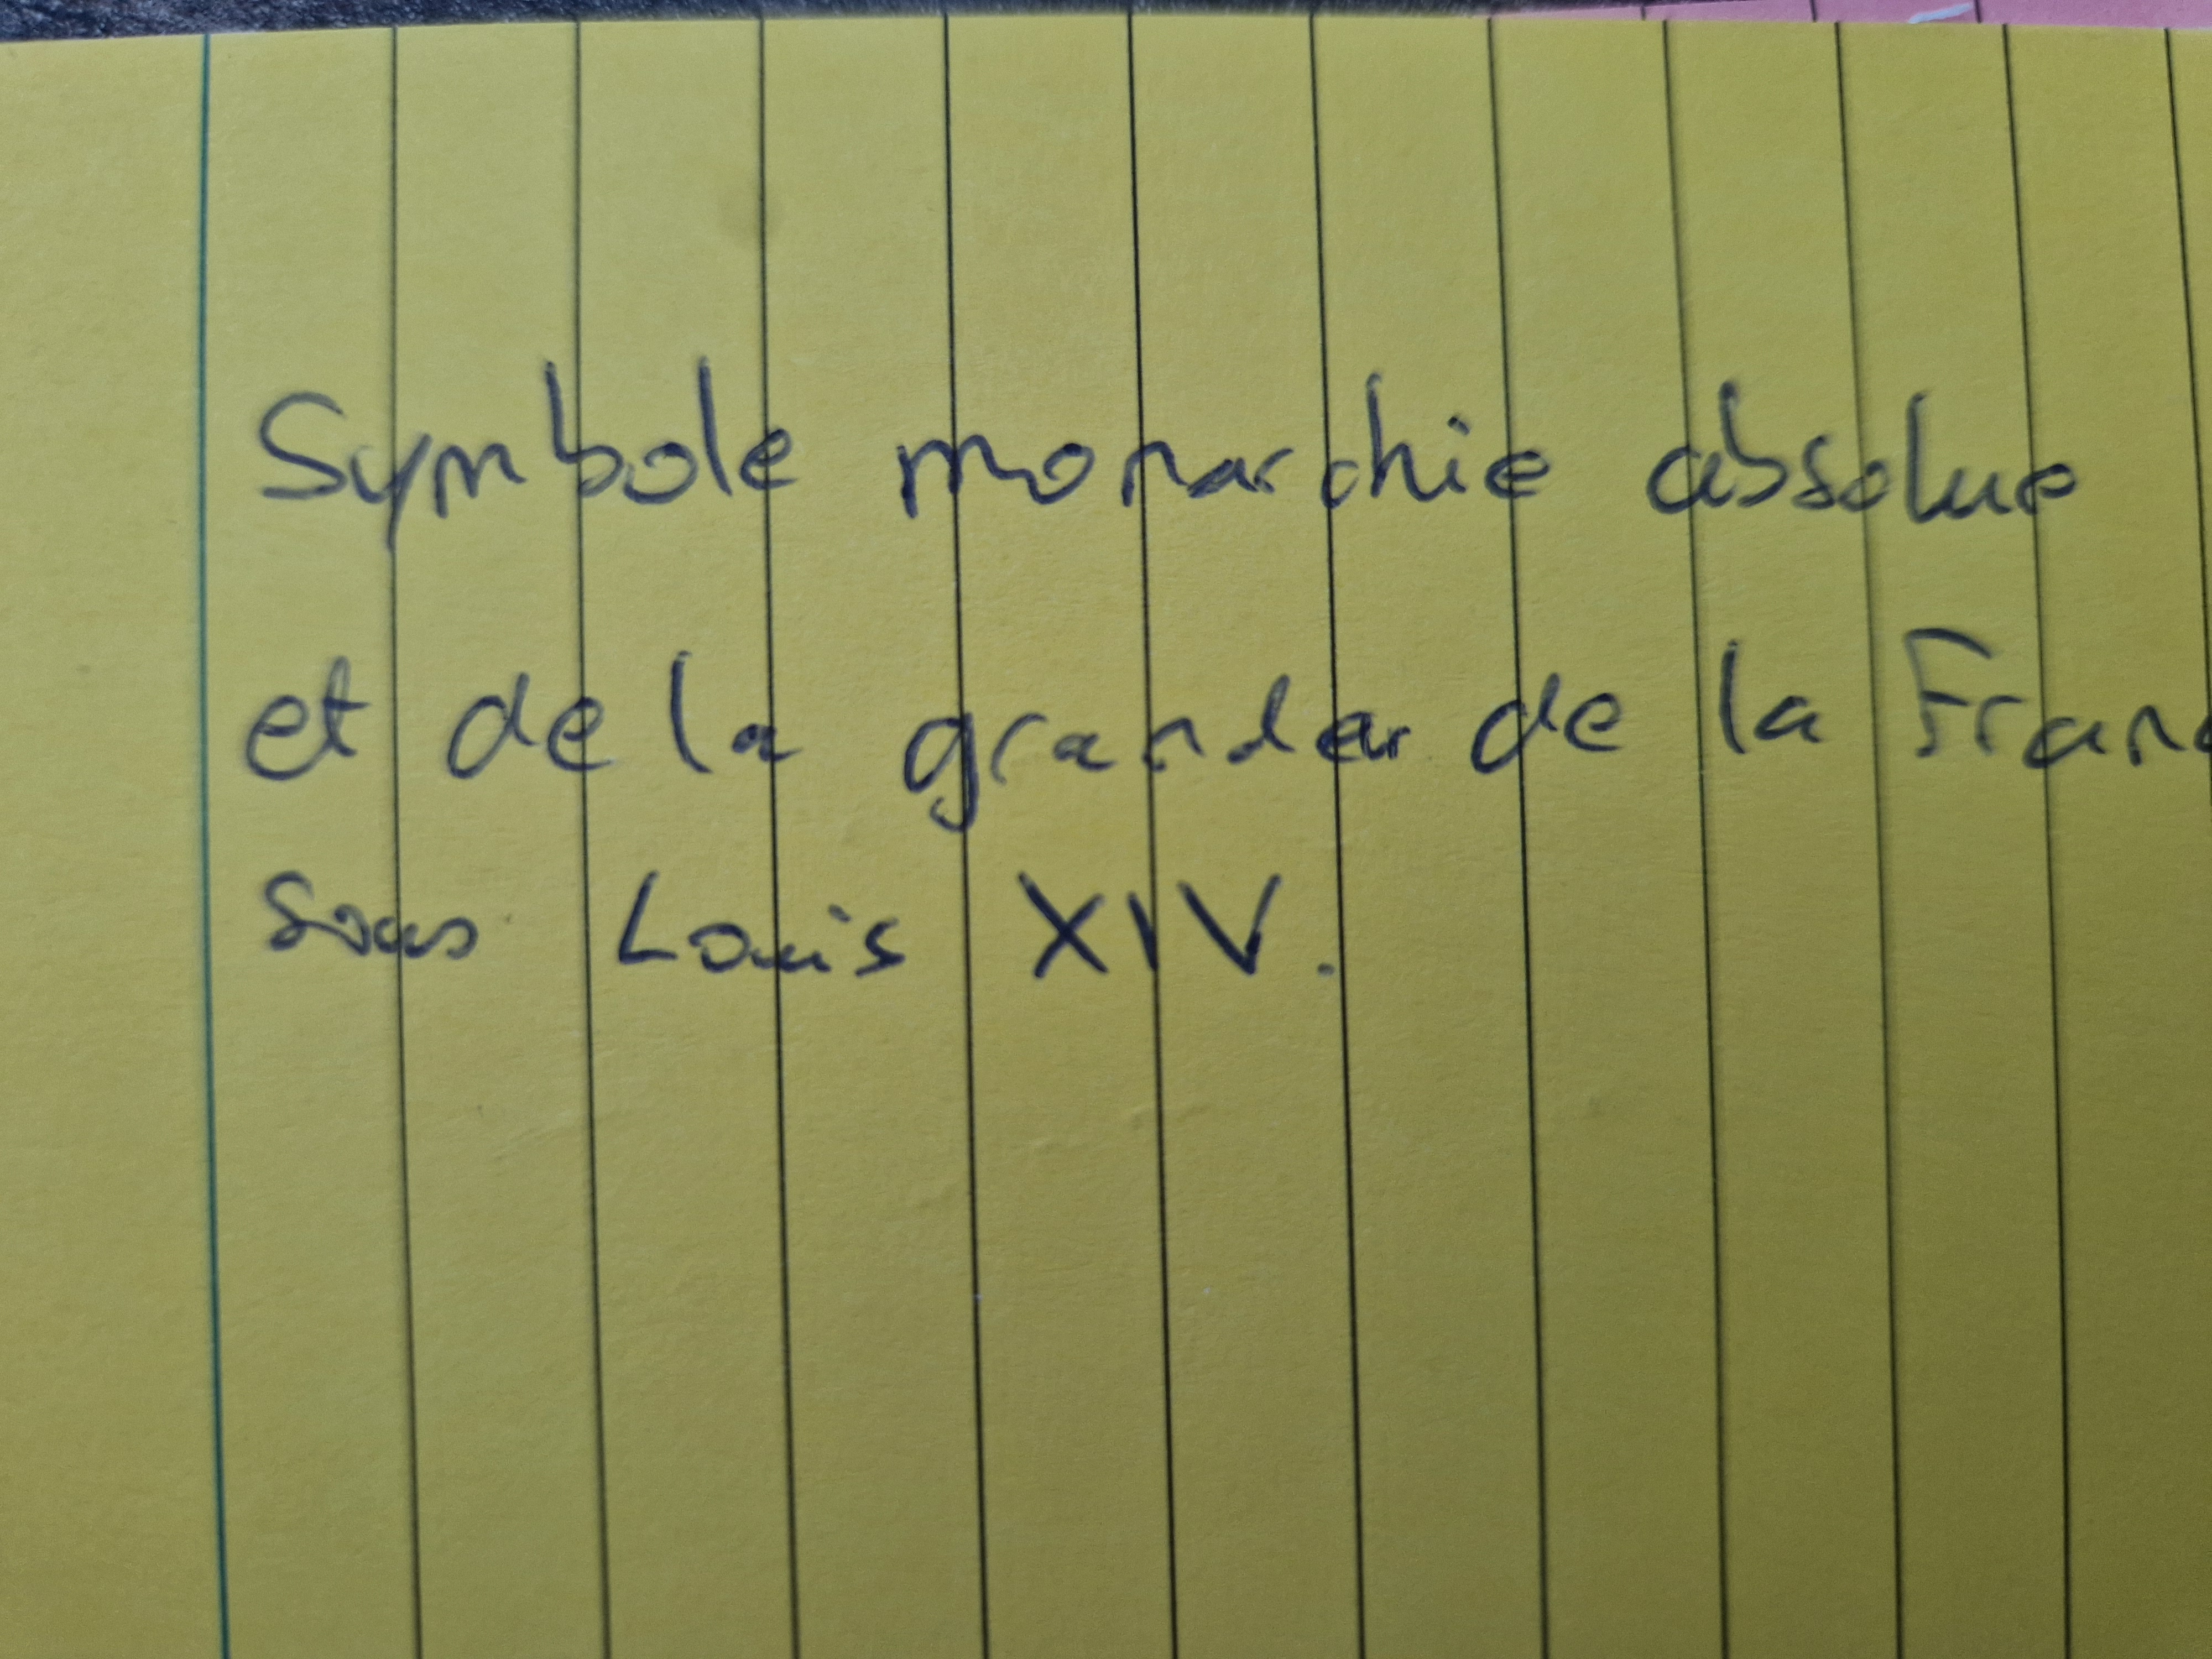 Symbole monarchie absolue
et de la grandeur de la Franc
sous Louis XIV.